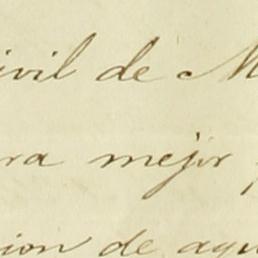 ivil de M
ra mejor
ion de aqu